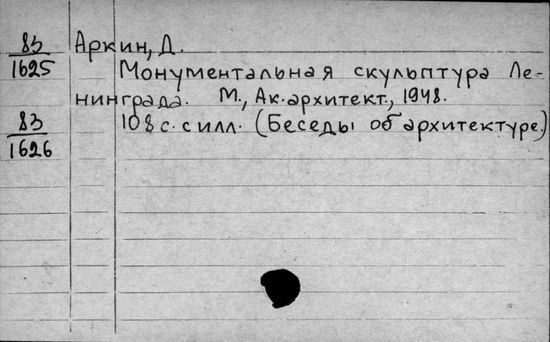 83/1625 Аркин, Д.
Монументальная скульптура Ле-
нинграда. М., Ак. архитект., 1948.
83/1626 108 с. с илл. (Беседы об архитектуре.)